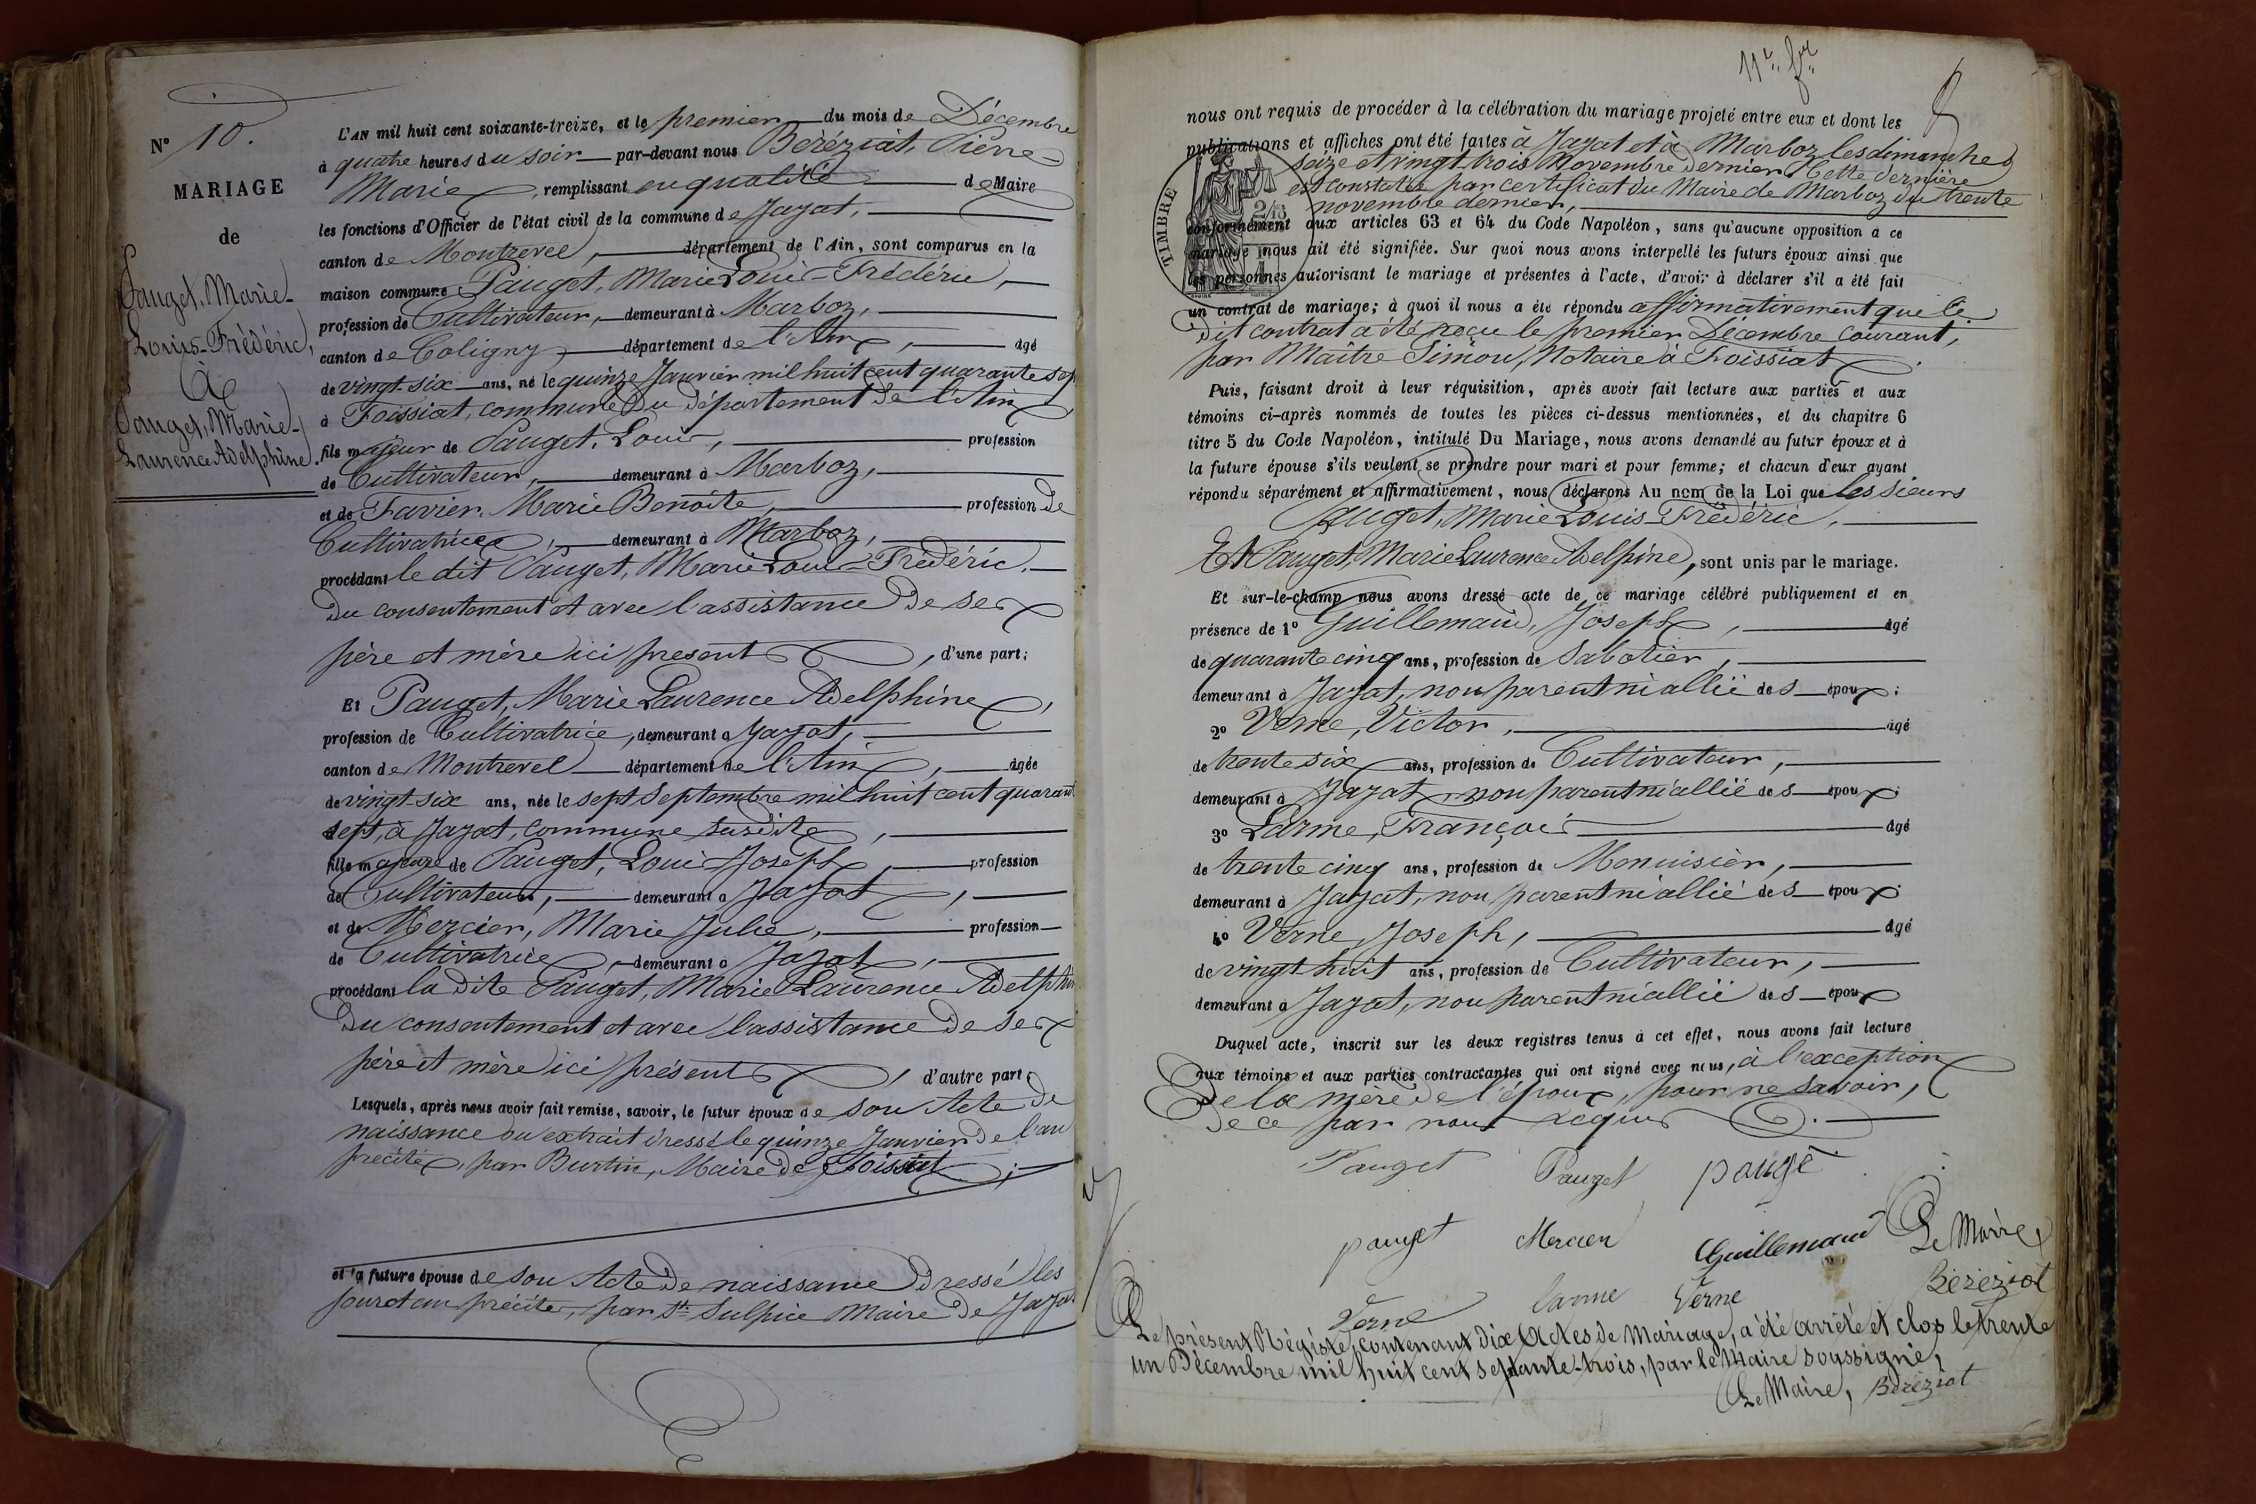 N° 10.
MARIAGE
de
Pauget, Marie-
Louis-Frédéric,
à
Pauget, Marie-
Laurence Adelphine.
L'AN mil huit cent soixante-treize, et le premier du mois de Décembre
à quatre heures du soir par-devant nous Béréziat, Pierre-
Marie, remplissant en qualité de Maire
les fonctions d'Officier de l'état civil de la commune de Jayat,
canton de Montrevel, département de l'Ain, sont comparus en la
maison commune Pauget, Marie Louis-Frédéric,
profession de Cultivateur, demeurant à Marboz,
canton de Coligny département de l'Ain, âgé
de vingt-six ans, né le quinze Janvier mil huit cent quarante sept
à Foissiat, commune du département de l'Ain
fils majeur de Pauget, Louis, profession
de Cultivateur, demeurant à Marboz,
et de Favier, Marie Benoite, profession de
Cultivatrice, demeurant à Marboz,
procédant le dit Pauget, Marie Louis-Frédéric.
Du consentement et avec l'assistance de ses
père et mère ici présents, d'une part;
Et Pauget, Marie Laurence Adelphine,
profession de Cultivatrice, demeurant à Jayat,
canton de Montrevel département de l'Ain, âgée
de vingt-six ans, née le sept Septembre mil huit cent quarant
sept, à Jayat, commune susdite,
fille majeure de Pauget, Louis Joseph, profession
de Cultivateur, demeurant à Jayat,
et de Mercier, Marie Julie, profession
de Cultivatrice, demeurant à Jayat,
procédant la dite Pauget, Marie Laurence Adelphin
Du consentement et avec l'assistance de ses
père et mère ici présents, d'autre part;
Lesquels, après nous avoir fait remise, savoir, le futur époux de son Acte de
naissance ou extrait dressé le quinze Janvier de l'an
précité, par Burtin, Maire de Foissiat;
et la future épouse de son Acte de naissance dressé les
jour et an précités, par St. Sulpice Maire de Jayat
11e. fr.
nous ont requis de procéder à la célébration du mariage projeté entre eux et dont les
publications et affiches ont été faites à Jayat et à Marboz les dimanches
seize et vingt trois Novembre dernier. Cette dernière
est constatée par certificat du Maire de Marboz du trente
novembre dernier,
TIMBRE
conformément aux articles 63 et 64 du Code Napoléon, sans qu'aucune opposition à ce
mariage nous ait été signifiée. Sur quoi nous avons interpellé les futurs époux ainsi que
les personnes autorisant le mariage et présentes à l'acte, d'avoir à déclarer s'il a été fait
un contrat de mariage; à quoi il nous a été répondu affirmativement que le
dit contrat a été reçu le premier Décembre courant,
par Maître Simon, Notaire à Foissiat.
Puis, faisant droit à leur réquisition, après avoir fait lecture aux parties et aux
témoins ci-après nommés de toutes les pièces ci-dessus mentionnées, et du chapitre 6
titre 5 du Code Napoléon, intitulé Du Mariage, nous avons demandé au futur époux et à
la future épouse s'ils veulent se prendre pour mari et pour femme; et chacun d'eux ayant
répondu séparément et affirmativement, nous déclarons Au nom de la Loi que les sieurs
Pauget, Marie Louis-Frédéric,
Et Pauget, Marie Laurence Adelphine, sont unis par le mariage.
Et sur-le-champ nous avons dressé acte de ce mariage célébré publiquement et en
présence de 1° Guillemaud, Joseph, âgé
de quarante cinq ans, profession de Sabotier,
demeurant à Jayat, non parent ni allié des époux;
2° Verne, Victor, âgé
de trente six ans, profession de Cultivateur,
demeurant à Jayat, non parent ni allié des époux;
3° Larme, François âgé
de trente cinq ans, profession de Menuisier,
demeurant à Jayat, non parent ni allié des époux;
4° Verne Joseph, âgé
de vingt huit ans, profession de Cultivateur,
demeurant à Jayat, non parent ni allié des époux
Duquel acte, inscrit sur les deux registres tenus à cet effet, nous avons fait lecture
aux témoins et aux parties contractantes qui ont signé avec nous, à l'exception
de la mère de l'époux, pour ne savoir,
de ce par nous requis.
Pauget Pauget paugé
pauget Mercier Guillemaud Le Maire
Verne Larme Verne Béréziat
Le présent Régistre, contenant dix Actes de Mariage, a été arrêté et clos le trente
un Décembre mil huit cent septante-trois, par le Maire soussigné,
Le Maire, Béréziat